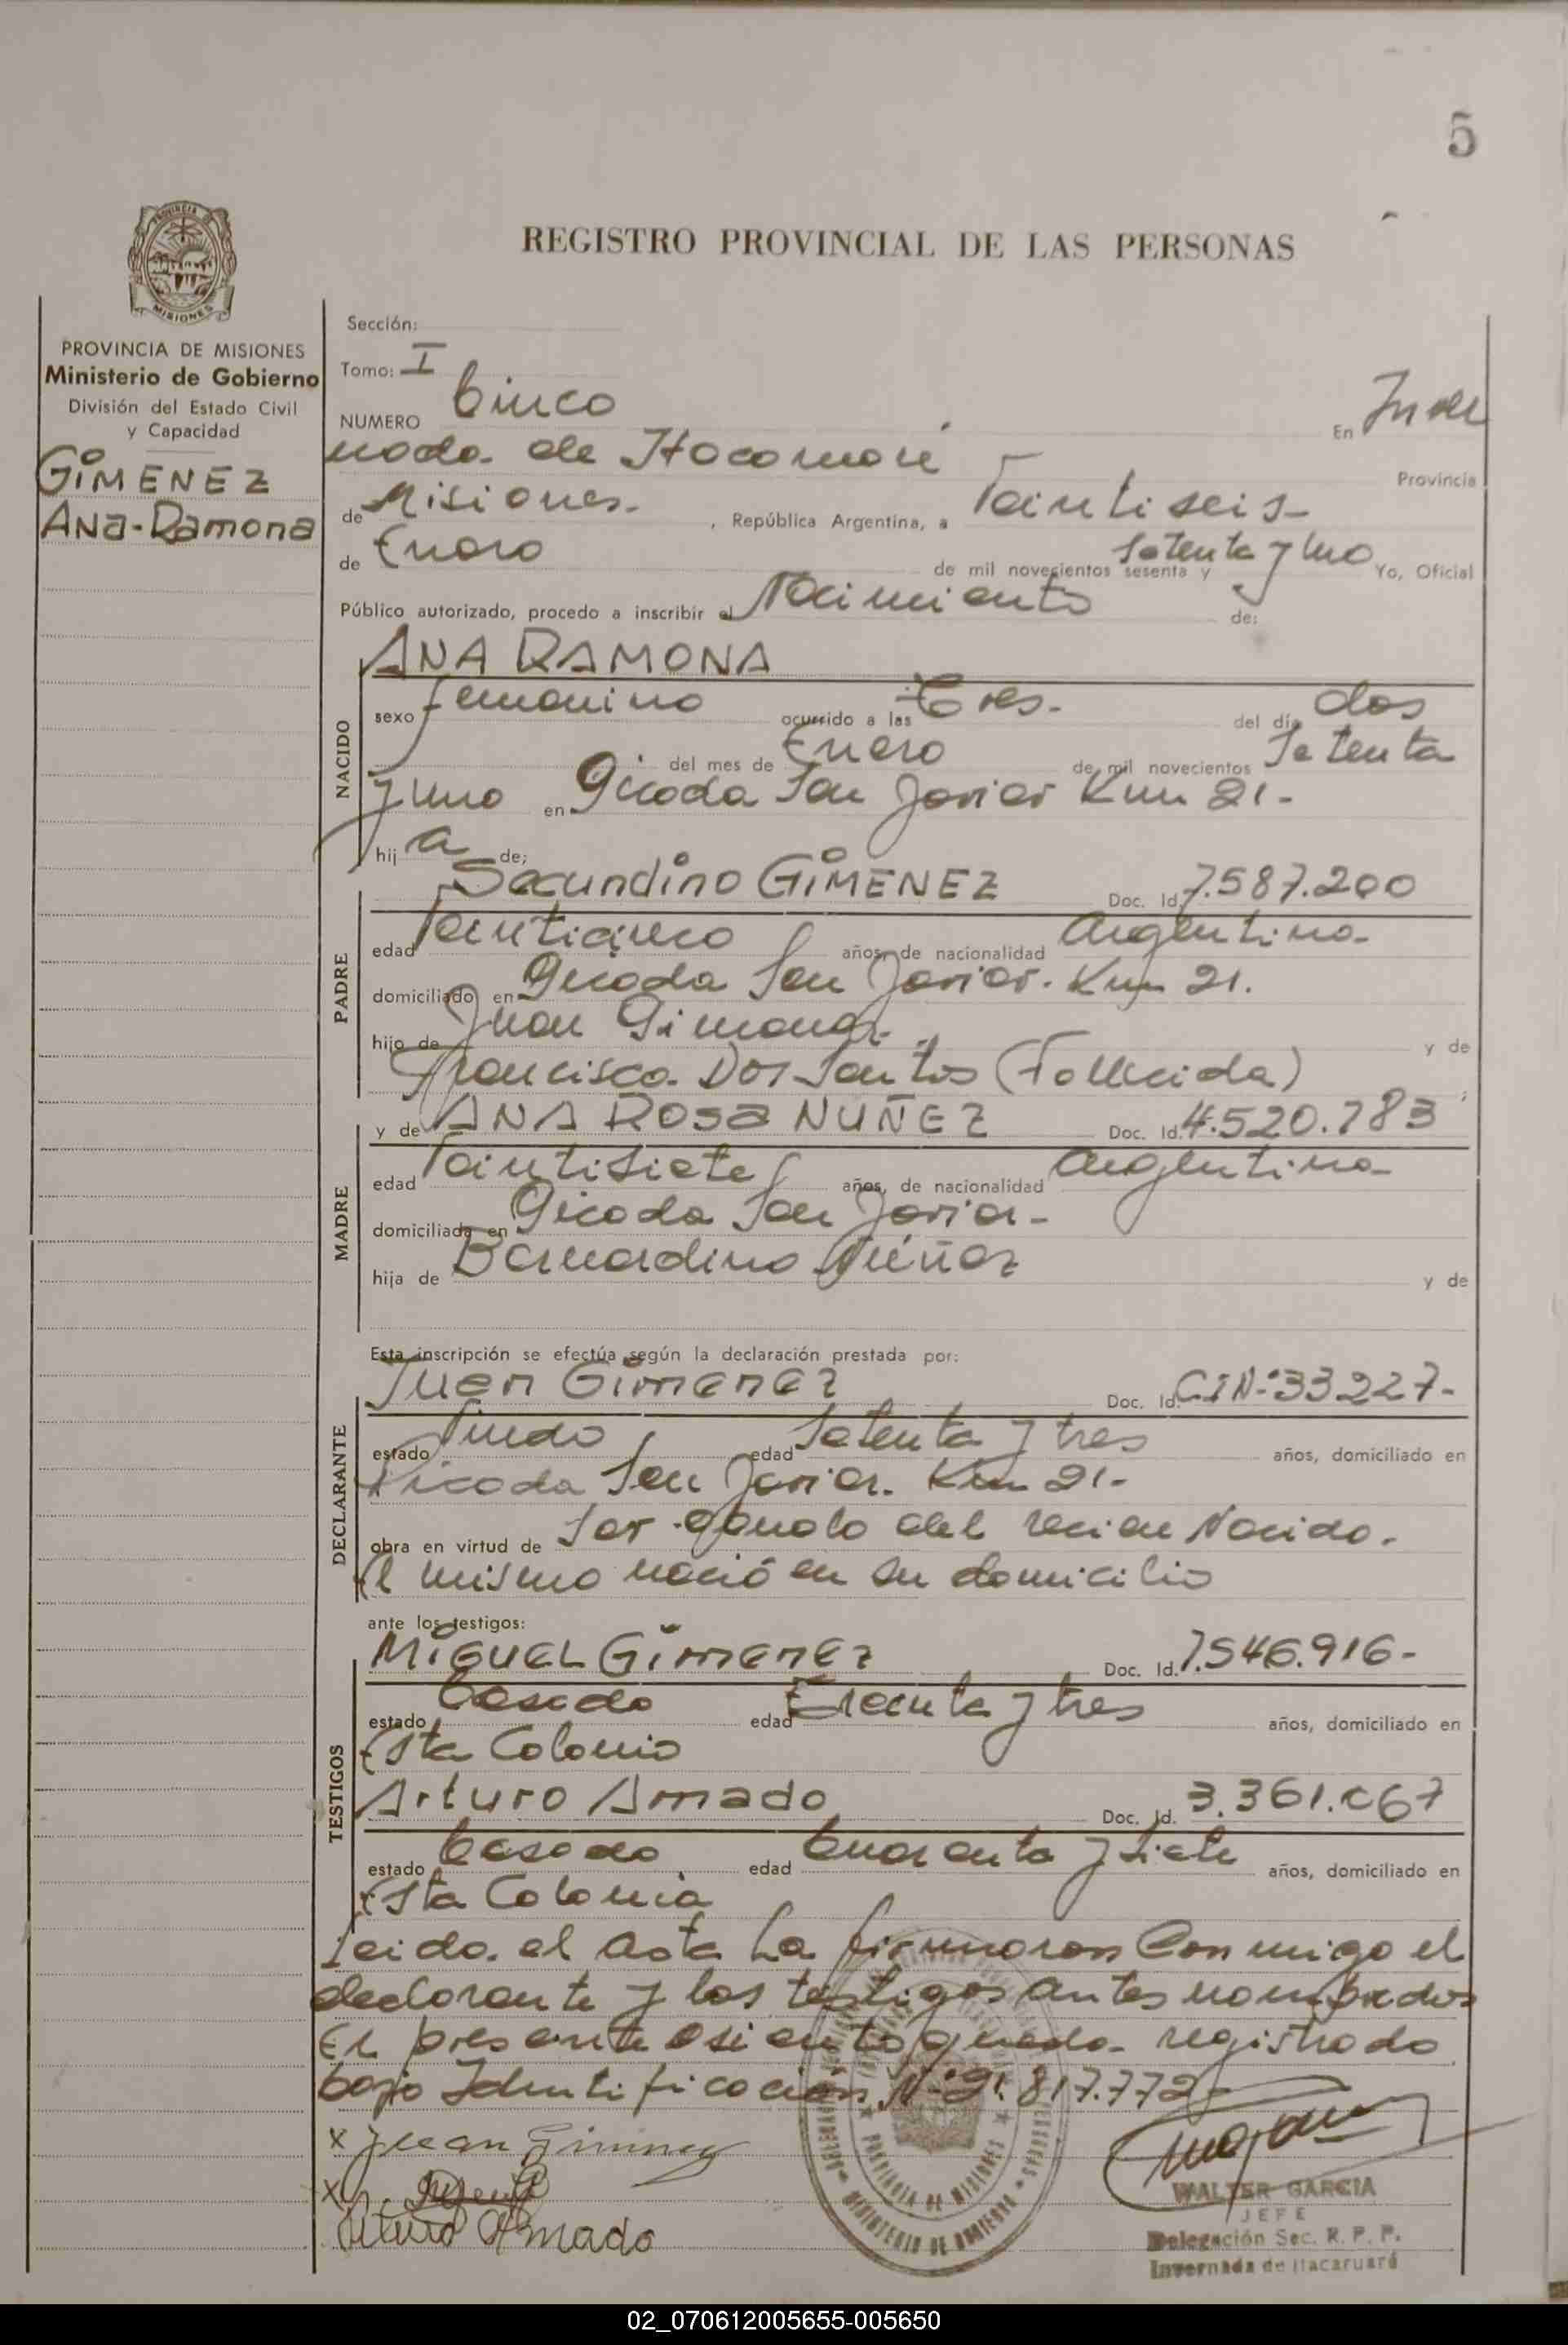 5
REGISTRO PROVINCIAL DE LAS PERSONAS
PROVINCIA DE MISIONES
Ministerio de Gobierno
División del Estado Civil
y Capacidad
GIMENEZ
ANA-Ramona
Sección:
Tomo: I
NUMERO Cinco En Inver
nada de Itacaruaré Provincia
de Misiones. , República Argentina, a Veintiseis
de Enero de mil novecientos sesenta y Setenta y uno Yo, Oficial
Público autorizado, procedo a inscribir el Nacimiento de:
NACIDO
ANA RAMONA
sexo femenino ocurrido a las tres. del día dos
del mes de Enero de mil novecientos Setenta
y uno en Picada San Javier Km 21-
hij a de;
PADRE
Secundino GIMENEZ Doc. Id. 7.587.200
edad Veinticinco años, de nacionalidad Argentina
domiciliado en Picada San Javier. Km 21.
hijo de Juan Gimenez y de
Francisca Dos Santos (Fallecida)
MADRE
y de ANA ROSA NUÑEZ Doc. Id. 4.520.783
edad Veintisiete años, de nacionalidad Argentina
domiciliada en Picada San Javier-
hija de Bernardino Núñez y de
Esta inscripción se efectúa según la declaración prestada por:
DECLARANTE
Juan Gimenez Doc. Id. CIN°33227-
estado Viudo edad Setenta y tres años, domiciliado en
Picada San Javier. Km 21-
obra en virtud de Ser abuelo del recien Nacido.
El mismo nació en su domicilio
ante los testigos:
TESTIGOS
MIGUEL Gimenez Doc. Id. 7.546.916-
estado Casado edad Treinta y tres años, domiciliado en
Esta Colonia
Arturo Amado Doc. Id. 3.361.067
estado Casado edad Cuarenta y siete años, domiciliado en
Esta Colonia
Leida el acta La firmaron Conmigo el
declarante y los testigos antes nombrados
El presente asiento queda registrado
bajo Identificación N°21.817.772-
x Juan Gimenez
x
Arturo Amado
PROVINCIA DE MISIONES
MINISTERIO DE GOBIERNO
WALTER GARCIA
JEFE
Delegación Sec. R. P. P.
Invernada de Itacaruaré
02_070612005655-005650